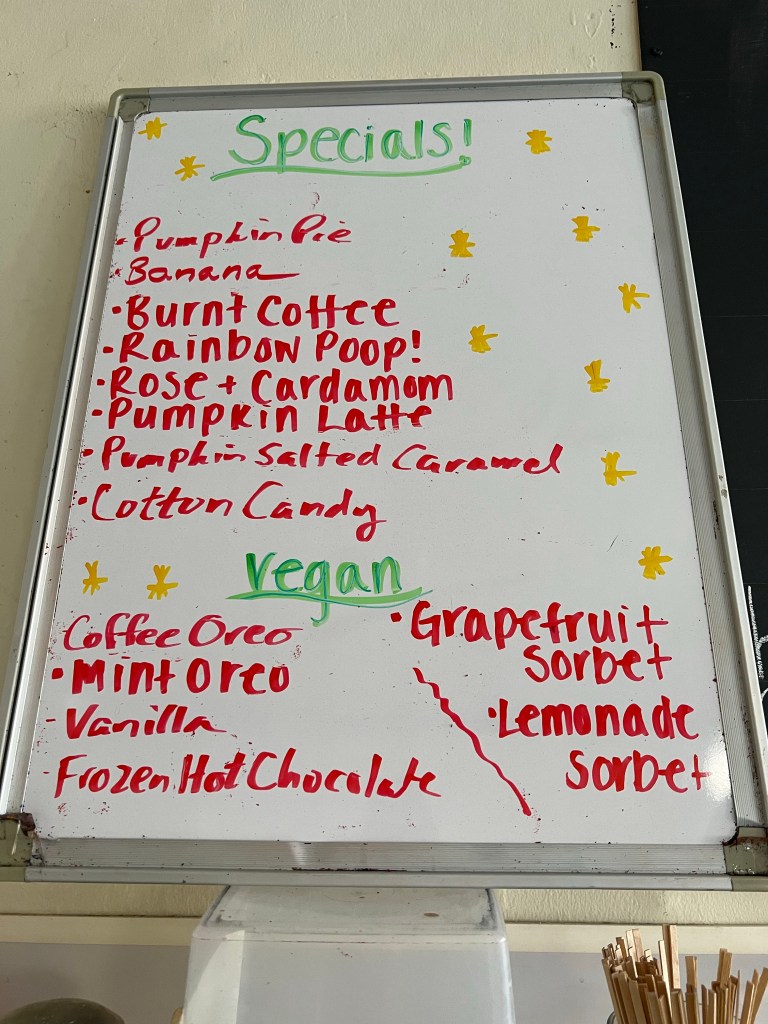 Specials!
·Pumpkin Pie
·Banana
·Burnt Coffee
·Rainbow Poop!
·Rose + Cardamom
·Pumpkin Latte
·Pumpkin Salted Caramel
·Cotton Candy
vegan
Coffee Oreo
·Mint Oreo
-Vanilla
Frozen Hot Chocolate
·Grapefruit
Sorbet
·Lemonade
Sorbet